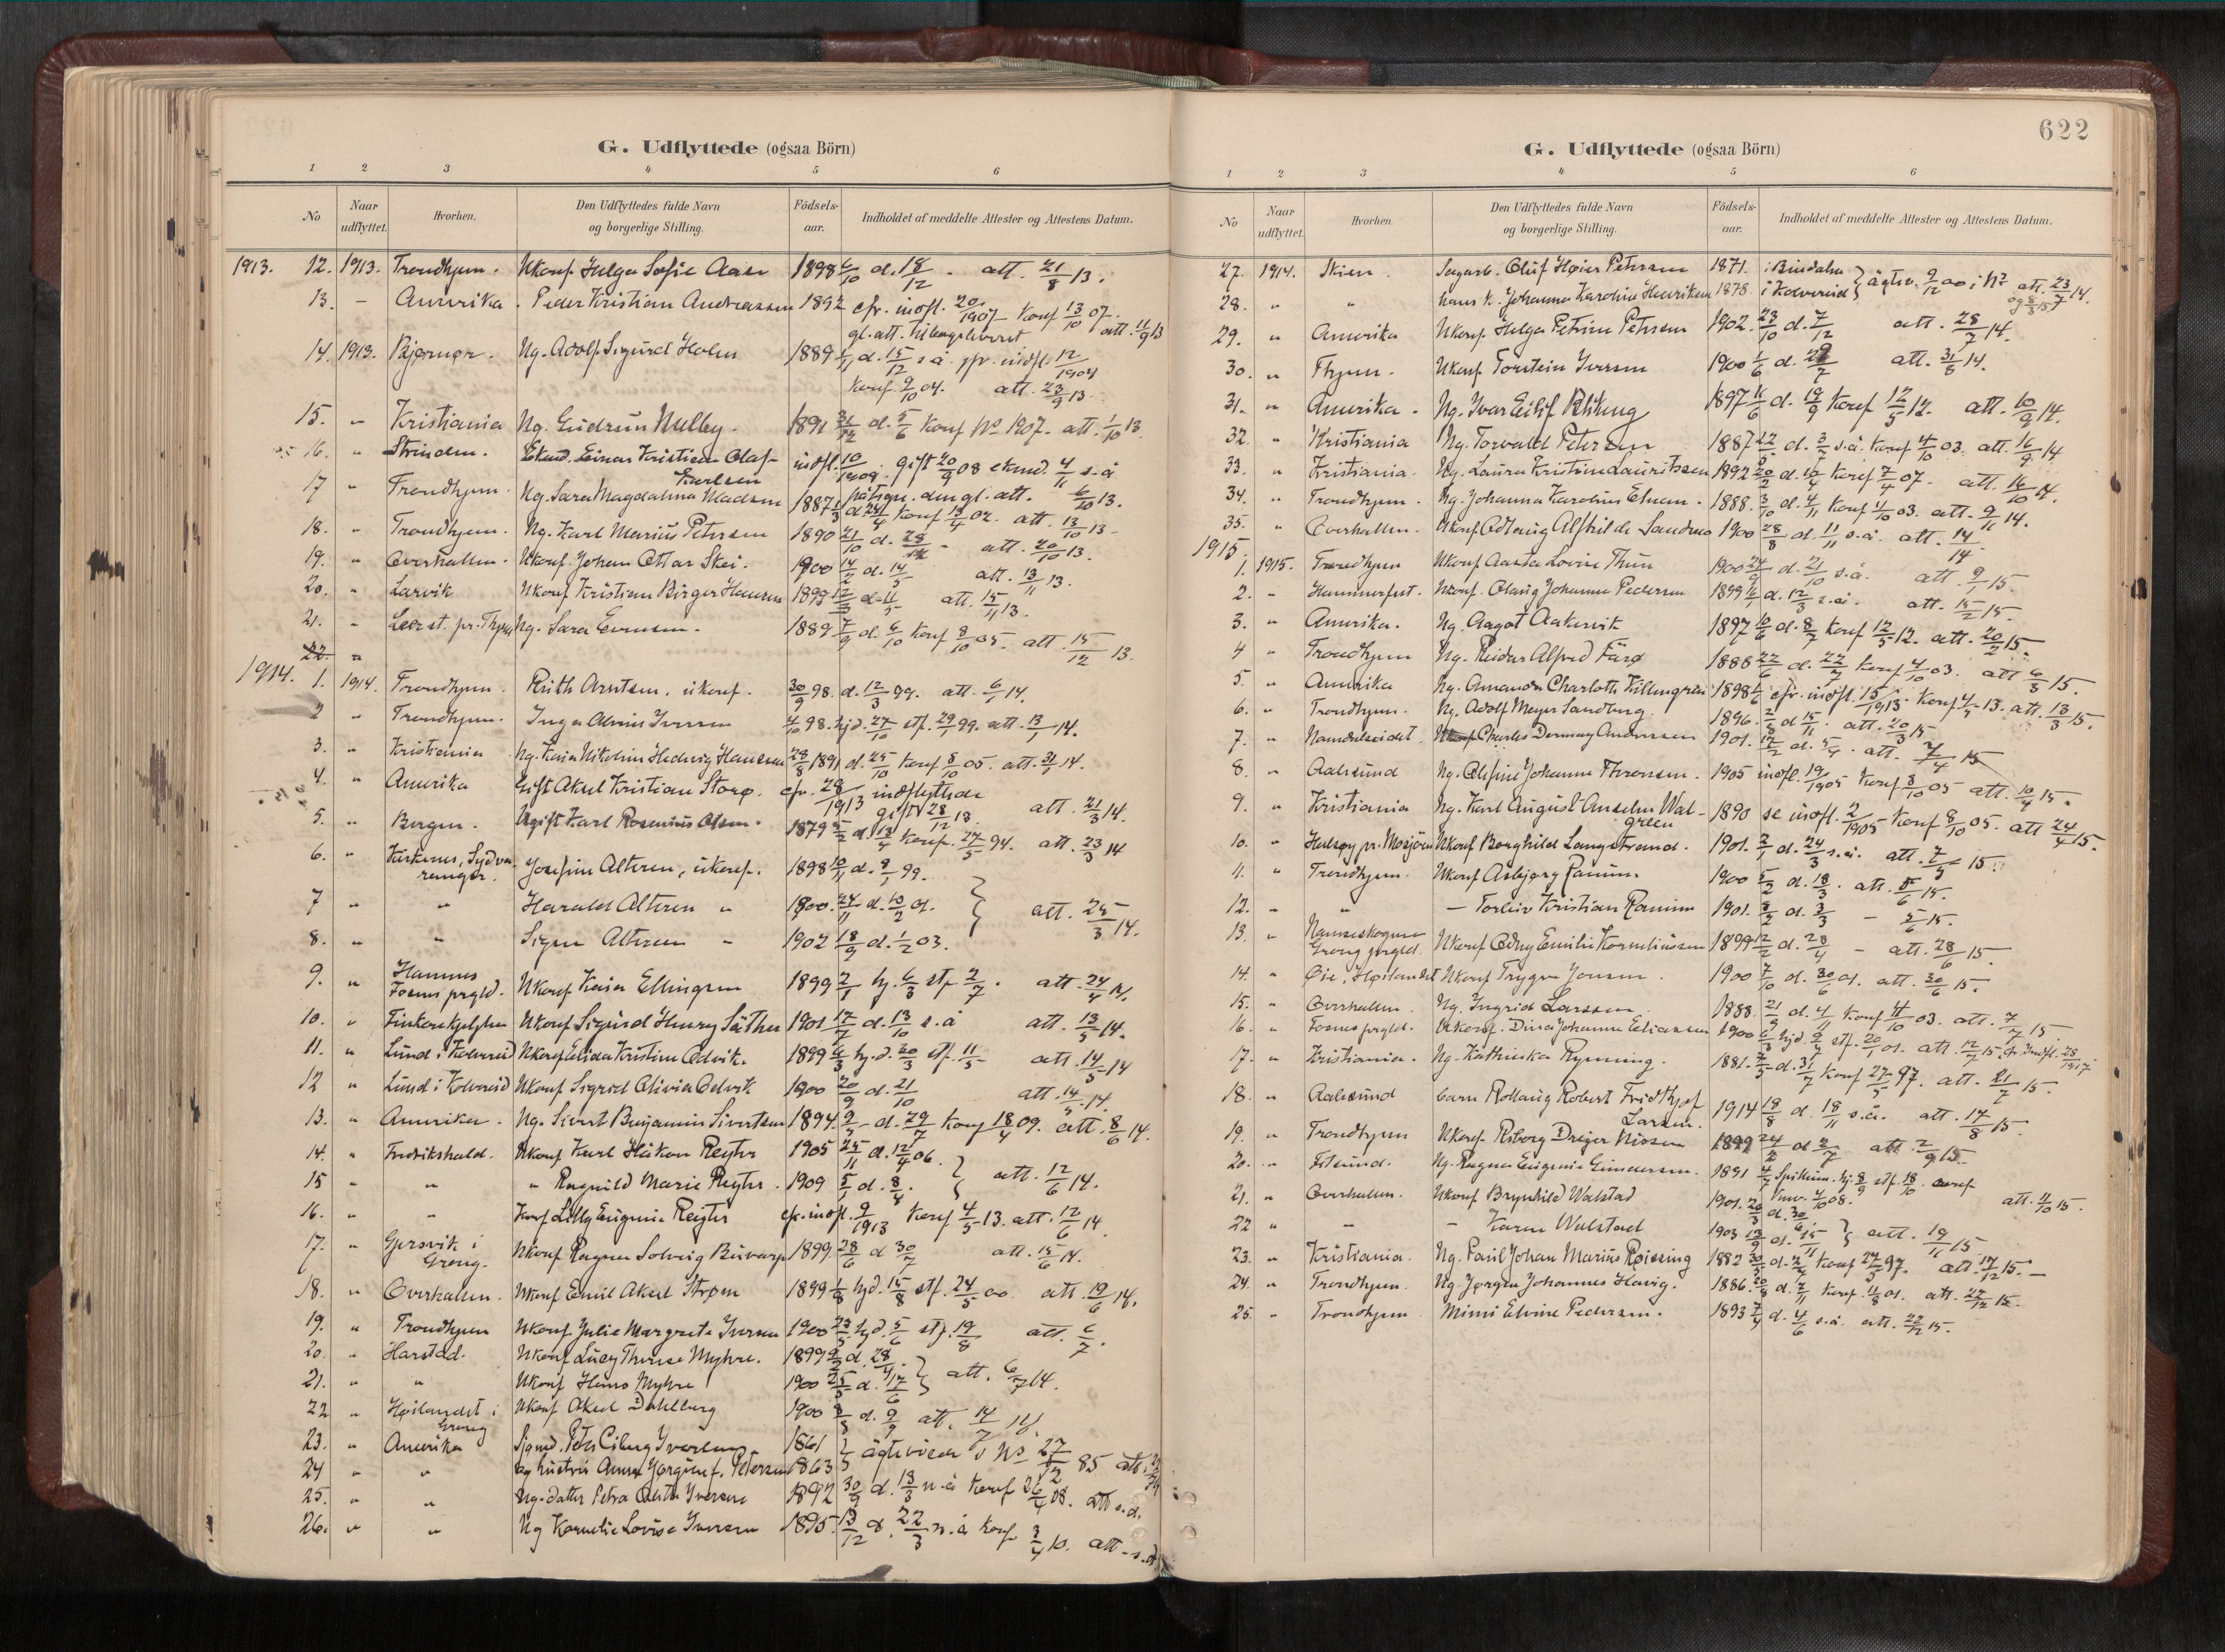 622
G. Udflyttede (ogsaa Börn)
1 2 3 4 5 6
No Naar udflyttet. Hvorhen. Den Udflyttedes fulde Navn og borgerlige Stilling. Födsels-aar. Indholdet af meddelte Attester og Attestens Datum.
1913. 12. 1913. Trondhjem. Ukonf. Helga Sofie Aasen 1898 6/10 d. 18/12 - att. 21/8 13.
13. - Amerika. Peder Kristian Andreassen 1892 cfr. indfl. 20/1907 konf 13/10 07.
gl. att. tilbageleveret att. 11/9 13
14. 1913. Bjørnør. Ng. Adolf Sigurd Holm 1889 1/11 d. 15/12 s.å. jfr. indfl. 12/1904
konf 9/10 04. att. 23/9 13.
15. " Kristiania Ng. Gudrun Melby. 1891 31/12 d. 5/6 konf No 1907. att. 1/10 13.
16. " Strinden. Ekmd. Einar Kristian Olaf- indfl. 10/1909. gift 20/9 08 ekmd. 4/11 s.å
Karlsen påtegn. den gl. att. 6/10 13.
17 " Trondhjem. Ng. Sara Magdalena Madsen 1887 1/3 d 24/4 konf 13/4 02. att. 13/10 13 -
18. " Trondhjem. Ng. Karl Marius Petersen 1890 21/10 d. 28/12 - att. 20/10 13.
19. " Overhallen. Ukonf. Johan Ottar Skei. 1900 14/2 d. 14/5 att. 13/11 13.
20. " Larvik Ukonf Kristian Birger Hansen 1899 12/3 d. 11/5 att. 15/11 13.
21. " Leer st. pr. Thjem Ng. Sara Evensen. 1889 7/9 d. 6/10 konf 8/10 05. att. 15/12 13.
22. "
1914. 1. 1914. Trondhjem. Ruth Arntsen. ukonf. 30/9 98. d. 12/3 99. att. 6/1 14.
2 " Trondhjem. Inga Alvine Iversen 4/10 98. hjd. 27/10 stf. 29/1 99. att. 13/1 14.
3. " Kristiania Ng. Kaia Nikoline Hedvig Hansen 28/8 1891 d. 25/10 konf 8/10 05. att. 31/1 14.
4. " Amerika Gift Aksel Kristian Storø. cfr. 28/1913 indflyttede
gift 28/12 13. att. 21/3 14.
5. " Bergen. Ugift Karl Rosenius Olsen. 1879 5/2 d. 13/4 konf. 27/5 94. att. 23/3 14
6. " Kirkenes, Sydva-
ranger. Josefine Alteren, ukonf. 1898 10/11 d. 9/1 99.
7 " " Harald Alteren " 1900. 24/11 d. 10/2 01. att. 25/3 14.
8. " " Signe Alteren " 1902 18/9 d. 1/2 03.
9. " Hamnes
Fosnes prgld. Ukonf Kaia Ellingsen 1899 2/1 hj. 6/3 stf 2/7. att. 24/4 14.
10. " Ukonf Sigurd Henry Säther 1901 17/7 d. 13/10 s.å att. 13/5 14.
11. " Lund i Kolvereid Ukonf Elida Kristine Ødvik. 1899 4/3 hj. d. 30/3 stf. 11/5 att. 14/5 14
12 " Lund i Kolvereid Ukonf Sigrid Olivia Ødvik 1900 20/9 d. 21/10 att. 14/5 14.
13. " Amerika. Ng. Sivert Benjamin Sivertsen 1894. d. 29/7 konf 18/4 09. att. 8/6 14.
14. " Fredrikshald. Ukonf Karl Håkon Reyter 1905 25/11 d. 12/4 06.
15 " " " Ragnild Marie Reyter. 1909 5/1 d. 8/4. att. 12/6 14.
16. " " Konf Lilly Eugenie Reyter cfr. indfl. 9/1913 konf 4/5 13. att. 12/6 14.
17. " Gjersvik i
Grong. Ukonf Ragna Solveig Buvarp 1899. 28/6 d 30/7 att. 15/6 14.
18. " Overhallen. Ukonf Emil Aksel Strøm 1899 1/8 hjd. 15/8 stf. 24/5 00. att. 19/6 14.
19. " Trondhjem Ukonf Julie Margrete Iversen 1900 23/5 hjd. 5/6 stf. 19/8 att. 6/7.
20. " Harstad. Ukonf Lucy Therese Myhre. 1899 d. 28/4.
21. " " Ukonf Hans Myhre 1900 25/5 d. 17/6 att. 6/7 14.
22 " Høilandet i
Grong Ukonf Aksel Dahlberg 1900 8/8 d. 9/9 att. 14/7 14.
23. " Amerika Sgmd. Peter Iversen 1861
24 " " og hustru Anna f. Petersen 1863 ägteviede i No 27/12 85 att.
25. " " Ng. datter Petra Iversen 1892 30/9 d. 13/3 n.å konf 26/4 08. att s.d.
26. " " Ng Kornelie Lovise Iversen 1895. 13/12 d. 22/3 n.å konf 3/4 10. att. s.d.
G. Udflyttede (ogsaa Börn)
1 2 3 4 5 6
No Naar udflyttet. Hvorhen. Den Udflyttedes fulde Navn og borgerlige Stilling. Födsels-aar. Indholdet af meddelte Attester og Attestens Datum.
27. 1914. Skien. Sagarb. Oluf Høier Petersen 1871. i Bindalen ägtev. 9/12 00 i N? att. 23/7 14.
28. " " hans k. Johanna Karoline Henriksen 1878 i Kolvereid og 8/3 15.
29. " Amerika Ukonf. Helga Petrine Petersen 1902. 23/10 d. 7/12 att. 28/7 14.
30. " Thjem. Ukonf Torstein Iversen 1900 1/6 d. 29/7 att. 31/8 14.
31. " Amerika. Ng. Ivar Eilif 1897 11/6 d. 19/9 konf 12/5 12. att. 10/9 14.
32. " Kristiania Ng. Torvald Petersen 1887 d. s.å. konf 4/10 03. att. 16/9 14
33. " Kristiania. Ng. Laura Kristine Lauritssen 1892 20/2 d. 10/4 konf 7/4 07. att. 16/10 14.
34. " Trondhjem. Ng. Johanna Karoline 1888. 3/10 d. 4/11 konf 4/10 03. att. 9/11 14.
35. " Overhallen. Ukonf Odlaug Alfhilde Sandnes 1900 28/8 d. 11/11 s.å. att. 14
1915. 1. 1915. Trondhjem Ukonf Aasta Lovise Thun 1900 24/9 d. 21/10 s.å. att. 9/1 15.
2. " Hammerfest. Ukonf. Olaug Johanne Pedersen 1899 d. 12/3 s.å. att. 15/2 15.
3. " Amerika. Ng. Aagot Aakervik 1897 10/6 d. 8/7 konf 12/5 12. att. 20/2 15.
4 " Trondhjem Ng. Reidar Alfred Farø 1888 22/6 d. 22/7 konf 4/10 03. att 6/3 15.
5. " Amerika Ng. Amanda Charlotte Killingren 1898 cfr. indfl. 15/1913. konf 4/5 13. att. 13/3 15.
6. " Trondhjem. Ng. Adolf Meyer Sandberg 1896. d 15/11. att. 20/3 15
7. " Namdalseidet Charles Andersen 1901. 17/2 d. 5/4. att. 7/4 15
8. " Aalesund Ng. Johanne Thronsen. 1905 indfl. 19/1905 konf 8/10 05 att. 10/4 15.
9. " Kristiania Ng. Karl August Anselm Wal-
green 1890 se indfl. 2/1905 konf 8/10 05. att 24/4 15.
10. " pr. Mosjøen Ukonf Borghild Langstrand. 1901. 2/1 d. 24/3 s.å. att. 7/5 15.
11. " Trondhjem. Ukonf Asbjørg Ranum 1900 5/2 d. 18/3. att. 5/6 15.
12. " " — Torleiv Kristian Ranum 1901. d. 3/3 - 5/6 15.
13. " Namsskogen
Grong prgld. Ukonf Odny Emilie Korneliussen 1899 12/2 d. 23/4 - att. 28/6 15.
14. " Øie, Høilandet Ukonf Trygve Jensen. 1900 7/10 d. 30/6 01. att. 30/6 15.
15. " Overhallen. Ng. Ingrid Larssen 1888. 21/9 d. 4/11 konf 4/10 03. att. 7/7 15
16. " Fosnes prgld. Ukonf. Dina Johanne Eliassen 1900 6/3 hjd. stf. 20/1 01. att. 12/7 15. cfr. Indfl. 28/1917
17. " Kristiania. Ng. Kathinka Rynning. 1881. d. 31/7 konf 27/5 97. att. 21/7 15.
18. " Aalesund barn Rollaug Robert Fridthjof
Larsen. 1914 19/8 d. 18/11 s.å. att. 14/8 15.
19. " Trondhjem Ukonf. Dreyer Nissen 1899 24/2 d 2/7 att 2/9 15.
20. " Ng. Ragna Eugenie Gundersen. 1891 4/7 Spillum. hj. 8/9 stf. 18/10. konf
21. " Overhallen. Ukonf Brynhild Walstad 1901. 20/3 d. 30/6 att. 11/10 15.
22 " " - Karen Walstad 1903 12/9 d. 15/11 att. 19/11 15
23. " Kristiania. Ng. Paul Johan Marius Roissing 1882 30/5 d. konf 27/5 97. att. 17/12 15. —
24. " Trondhjem. Ng. Jørgen Johannes Havig. 1886. d. konf. 11/8 01. att. 22/12 15.
25 " Trondhjem Mimi Elvine Pedersen. 1893 7/4 d. 4/6 s.å. att. 22/12 15.